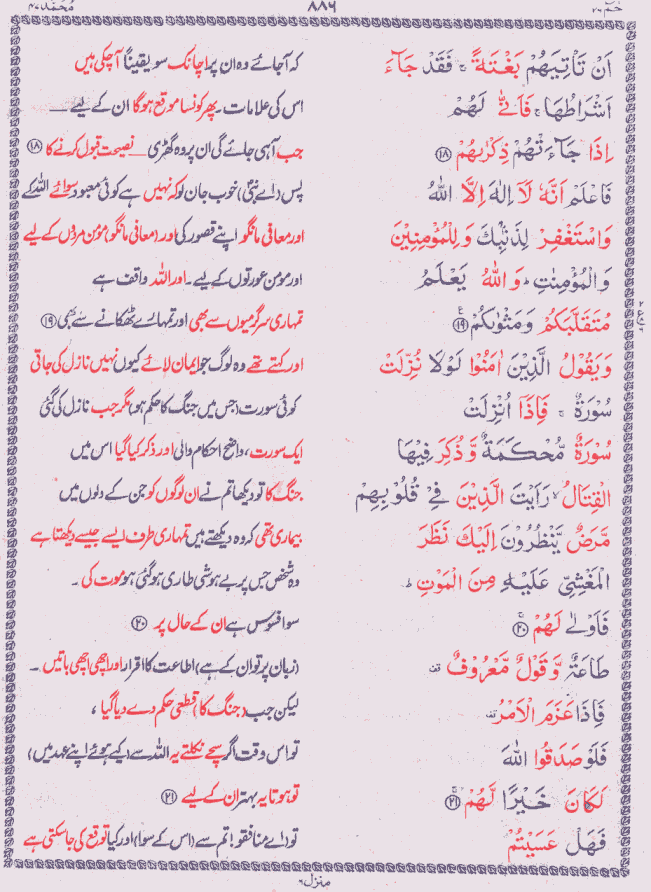 حٰمٓ ۲۶ ۸۸۶ مُحَمَّد ۴۷
اَنْ تَاْتِيَهُمْ بَغْتَةً ۚ فَقَدْ جَآءَ کہ آجائے وہ ان پر اچانک سو یقیناً آچکی ہیں
اَشْرَاطُهَا ۚ فَاَنّٰى لَهُمْ اس کی علامات۔ پھر کونسا موقع ہوگا ان کے لیے ــــ
اِذَا جَآءَتْهُمْ ذِكْرٰىهُمْ ﴿۱۸﴾ جب آہی جائے گی ان پر وہ گھڑی ــــ نصیحت قبول کرنے کا ﴿۱۸﴾
فَاعْلَمْ اَنَّهٗ لَاۤ اِلٰهَ اِلَّا اللّٰهُ پس (اے نبیؐ) خوب جان لو کہ نہیں ہے کوئی معبود سوائے اللہ کے
وَاسْتَغْفِرْ لِذَنْۢبِكَ وَلِلْمُؤْمِنِيْنَ اور معافی مانگو اپنے قصور کی اور (معافی مانگو) مومن مردوں کے لیے
وَالْمُؤْمِنٰتِ ؕ وَاللّٰهُ يَعْلَمُ اور مومن عورتوں کے لیے۔ اور اللہ واقف ہے
مُتَقَلَّبَكُمْ وَمَثْوٰىكُمْ ﴿۱۹﴾ تمہاری سرگرمیوں سے بھی اور تمہارے ٹھکانے سے بھی ﴿۱۹﴾
وَيَقُوْلُ الَّذِيْنَ اٰمَنُوْا لَوْلَا نُزِّلَتْ اور کہتے تھے وہ لوگ جو ایمان لائے کیوں نہیں نازل کی جاتی
سُوْرَةٌ ۚ فَاِذَاۤ اُنْزِلَتْ کوئی سورت (جس میں جنگ کا حکم ہو) مگر جب نازل کی گئی
سُوْرَةٌ مُّحْكَمَةٌ وَّذُكِرَ فِيْهَا ایک سورت، واضح احکام والی اور ذکر کیا گیا اس میں
الْقِتَالُ ۙ رَاَيْتَ الَّذِيْنَ فِيْ قُلُوْبِهِمْ جنگ کا تو دیکھا تم نے ان لوگوں کو جن کے دلوں میں
مَّرَضٌ يَّنْظُرُوْنَ اِلَيْكَ نَظَرَ بیماری تھی کہ وہ دیکھتے ہیں تمہاری طرف ایسے جیسے دیکھتا ہے
الْمَغْشِيِّ عَلَيْهِ مِنَ الْمَوْتِ ؕ وہ شخص جس پر بے ہوشی طاری ہوگئی ہو موت کی۔
فَاَوْلٰى لَهُمْ ﴿۲۰﴾ سو افسوس ہے ان کے حال پر ﴿۲۰﴾
طَاعَةٌ وَّقَوْلٌ مَّعْرُوْفٌ ۟ (زبان پر تو ان کے ہے) اطاعت کا اقرار اور اچھی اچھی باتیں۔
فَاِذَا عَزَمَ الْاَمْرُ ۟ لیکن جب (جنگ کا) قطعی حکم دے دیا گیا،
فَلَوْ صَدَقُوا اللّٰهَ تو اس وقت اگر سچے نکلتے یہ اللہ سے (کیے ہوئے اپنے عہد میں)
لَكَانَ خَيْرًا لَّهُمْ ﴿۲۱﴾ تو ہوتا یہ بہتر ان کے لیے ﴿۲۱﴾
فَهَلْ عَسَيْتُمْ تو اے منافقو! تم سے (اس کے سوا) اور کیا توقع کی جاسکتی ہے
منزل ۶